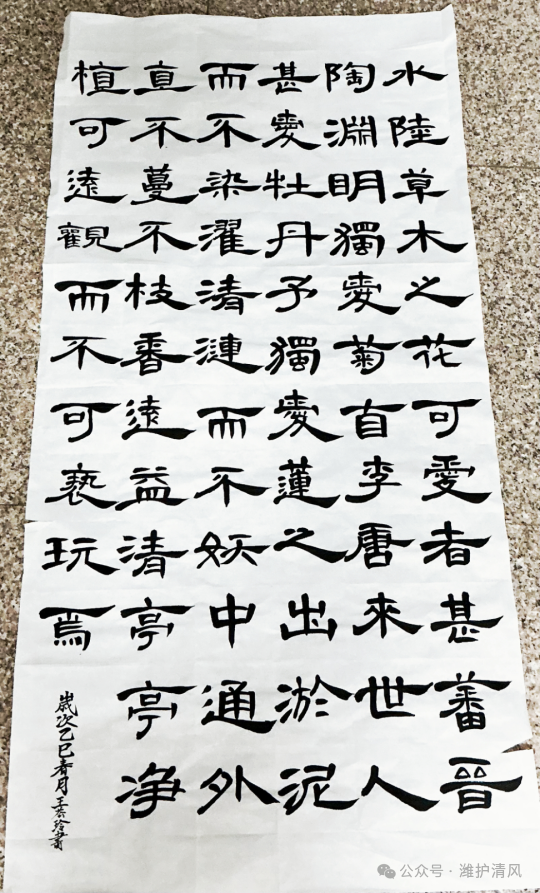 水陸草木之花可愛者甚蕃晉
陶淵明獨愛菊自李唐來世人
甚愛牡丹予獨愛蓮之出淤泥
而不染濯清漣而不妖中通外
直不蔓不枝香遠益清亭亭净
植可遠觀而不可褻玩焉
歲次乙巳春月王玲書
公众号 · 潍护清风